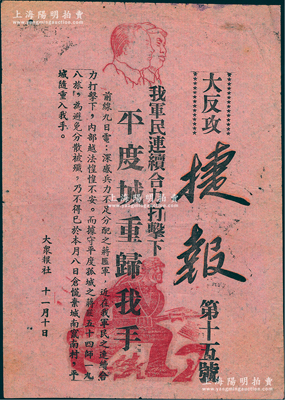 上海陽明拍賣
大反攻
捷報
第十五號
我軍民連續合力打擊下
平度城重歸我手
前線九日電:深感兵力不足分配之蔣匪軍,近在我軍民之連續合
力打擊下,內部越法惶惶不安。而據守平度孤城之蔣匪五十四師一九
八旅,為避免分散被殲,乃不得已於本月八日倉慌棄城南竄南村。平
城隨重入我手。
大衆報社 十一月十日
上海陽明拍賣